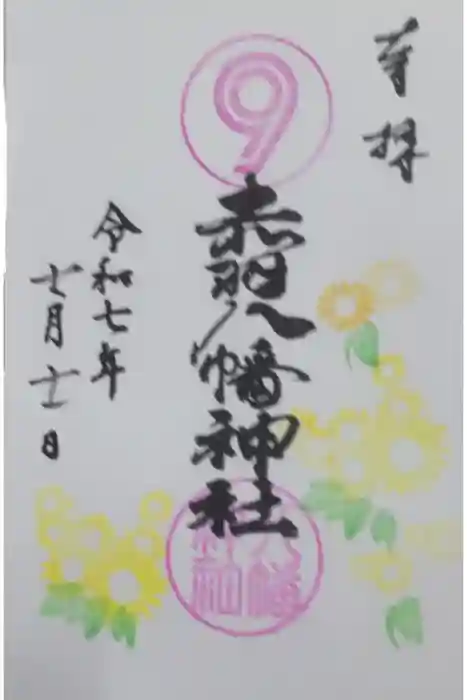 奉拝
9
赤羽八幡神社
令和七年
十一月十一日